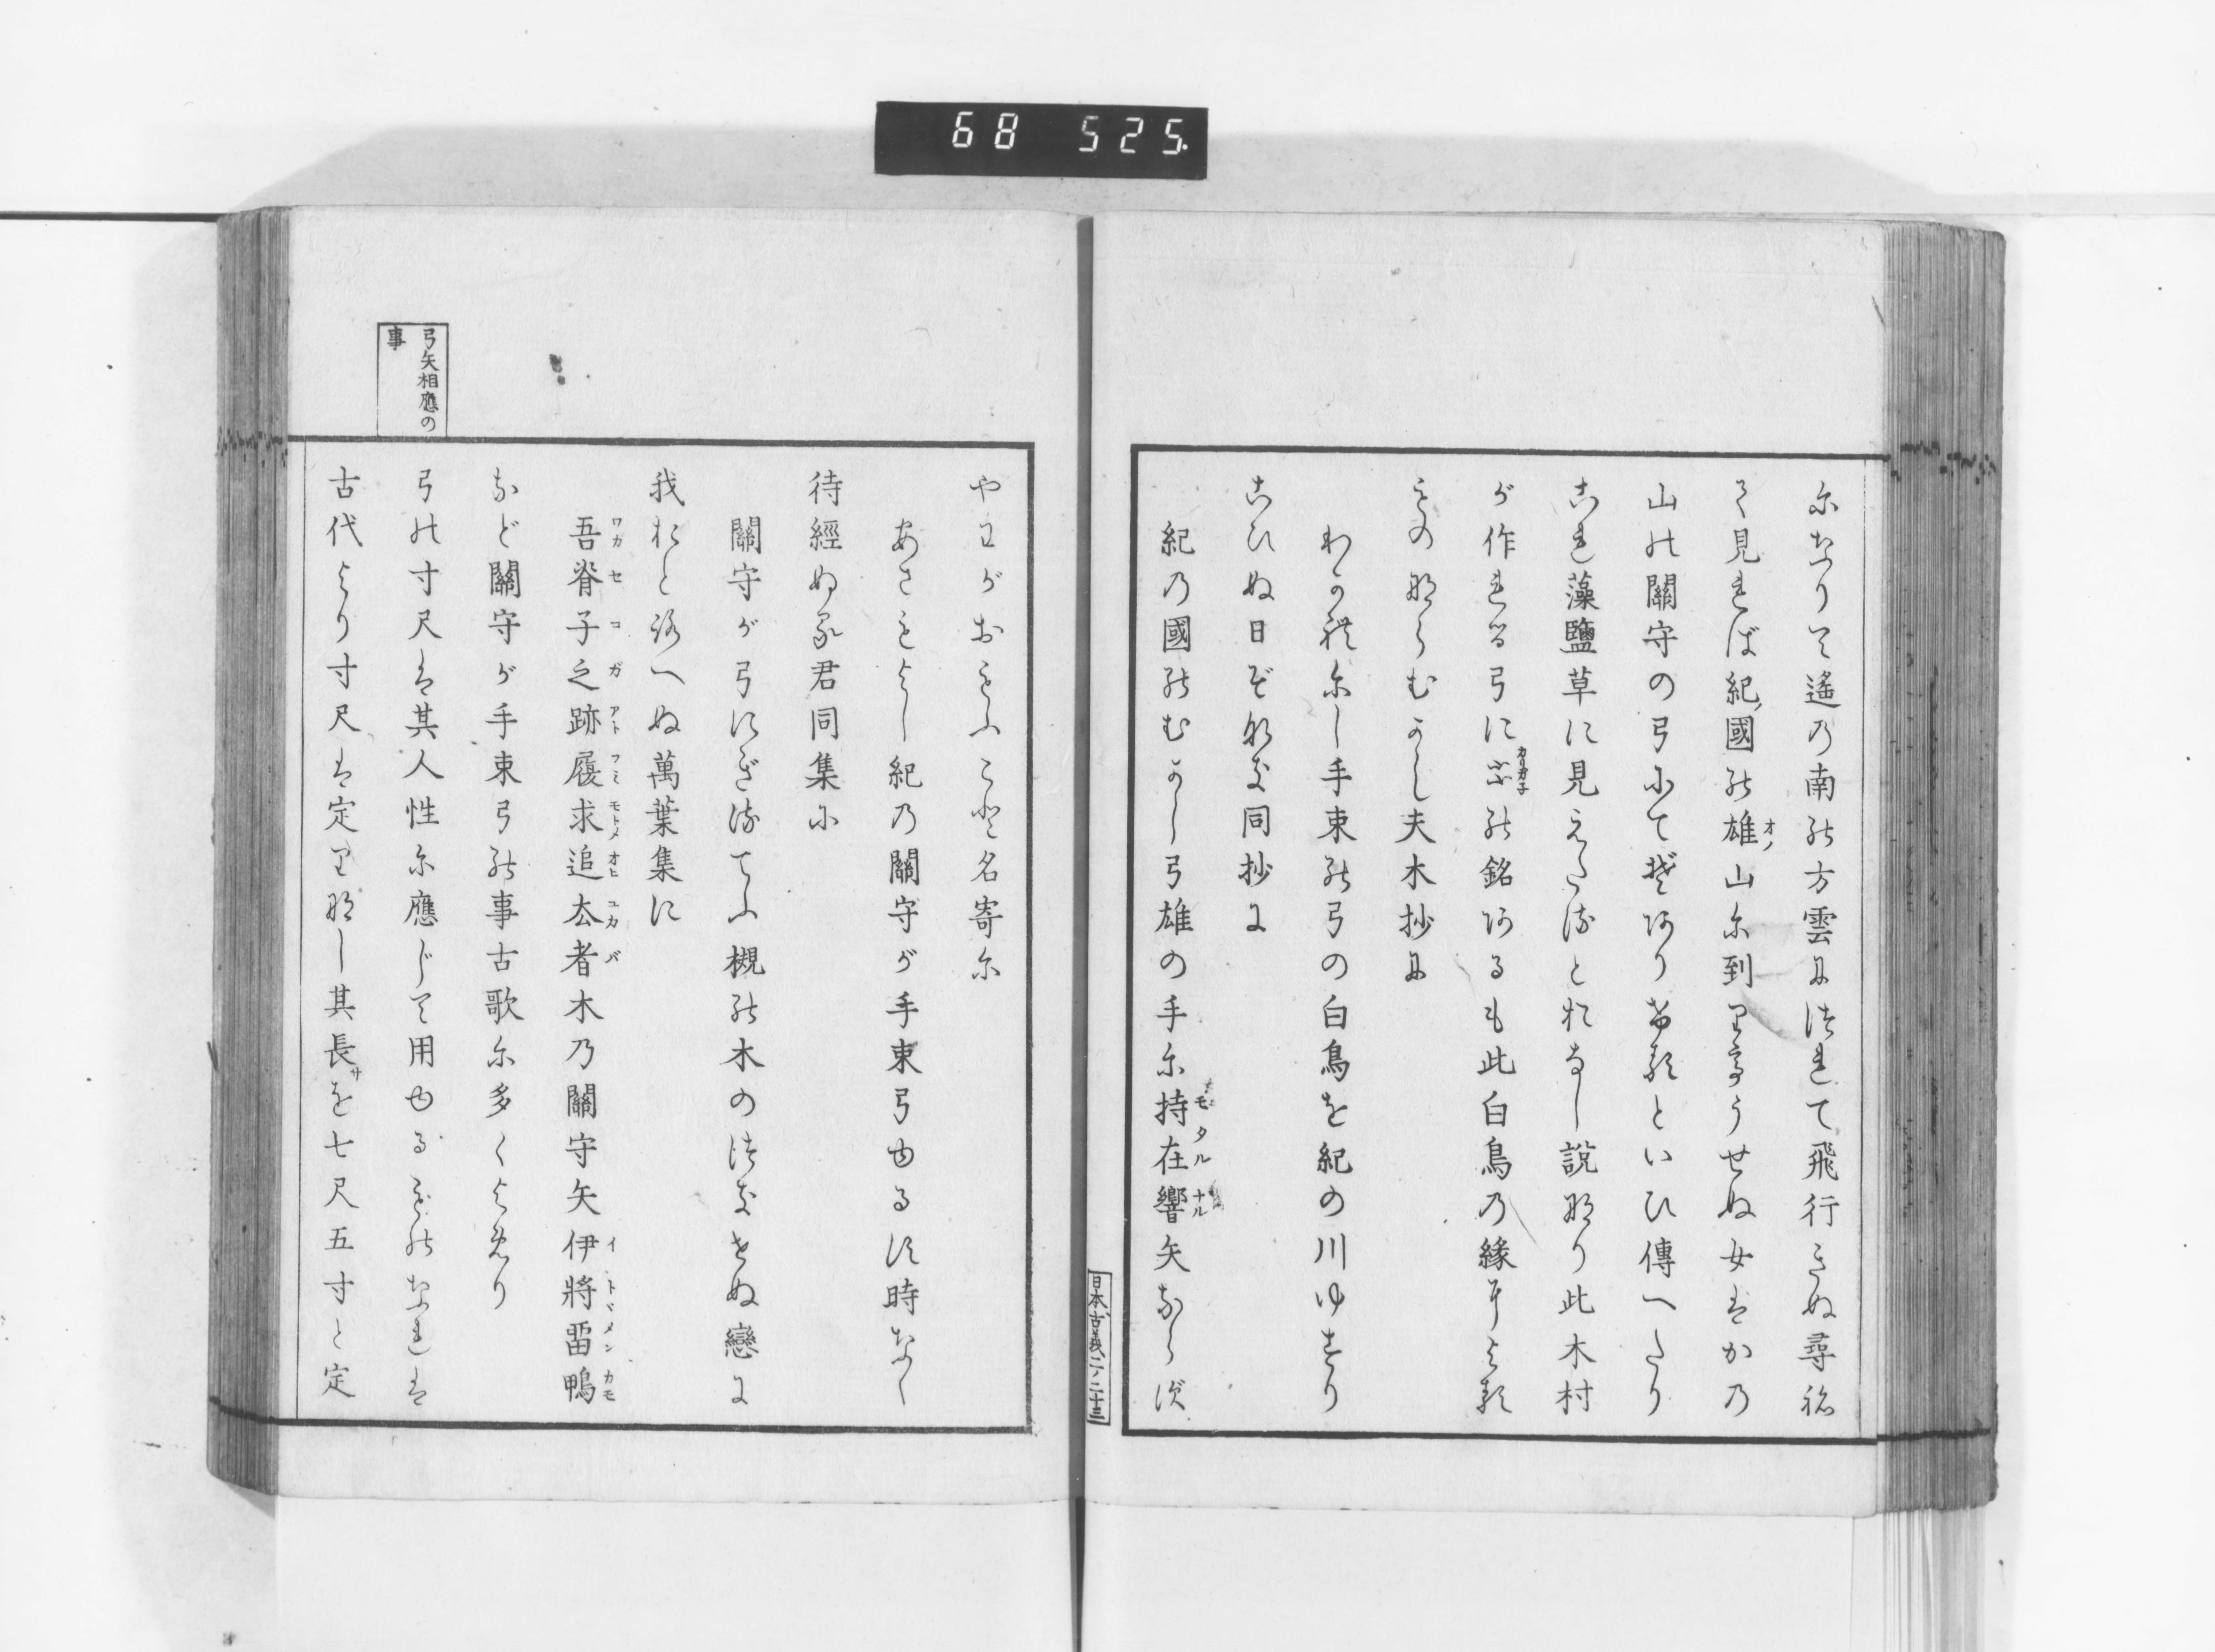 68 525
になりて遙の南の方雲につれて飛行きぬ尋ね
て見れば紀ノ國の雄ノ山に到りてうせぬ女はかの
山の關守の弓にてぞありけるといひ傳へたり
これ藻鹽草に見えたるとおなし說なり此木村
が作れる弓にの銘あるも此白鳥の緣による
ものならむかし夫木抄に
わかれにし手束の弓の白鳥を紀の川ゆすり
こひぬ日ぞなき同抄に
紀の國のむかし弓雄の手に持在響矢ならず
日本古義二ノ二十三
やわがおもふこと名寄に
あさもよし紀の關守が手束弓ゆるす時なく
待經ぬる君同集に
關守が弓にぎるてふ槻の木のつきせぬ戀に
我おとろへぬ萬葉集に
吾脊子之跡履求追去者木乃關守矢伊將畱鴨
など關守が手束弓の事古歌に多くよめり
弓矢相應の事
弓の寸尺は其人性に應じて用ゆるものなれは
古代より寸尺は定りなし其長サを七尺五寸と定